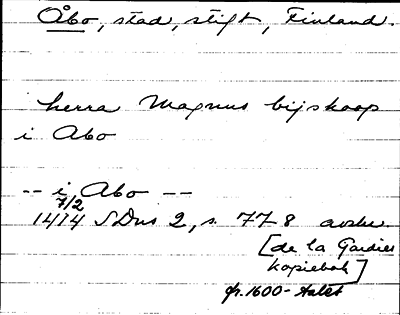 Åbo, stad, stift, Finland.
herra Magnus bijskoop
i Abo
-- i Abo --
7/2
1414 SDns 2, s. 77-8 avskr.
[de la Gardies
kopiebok]
fr. 1600-talet